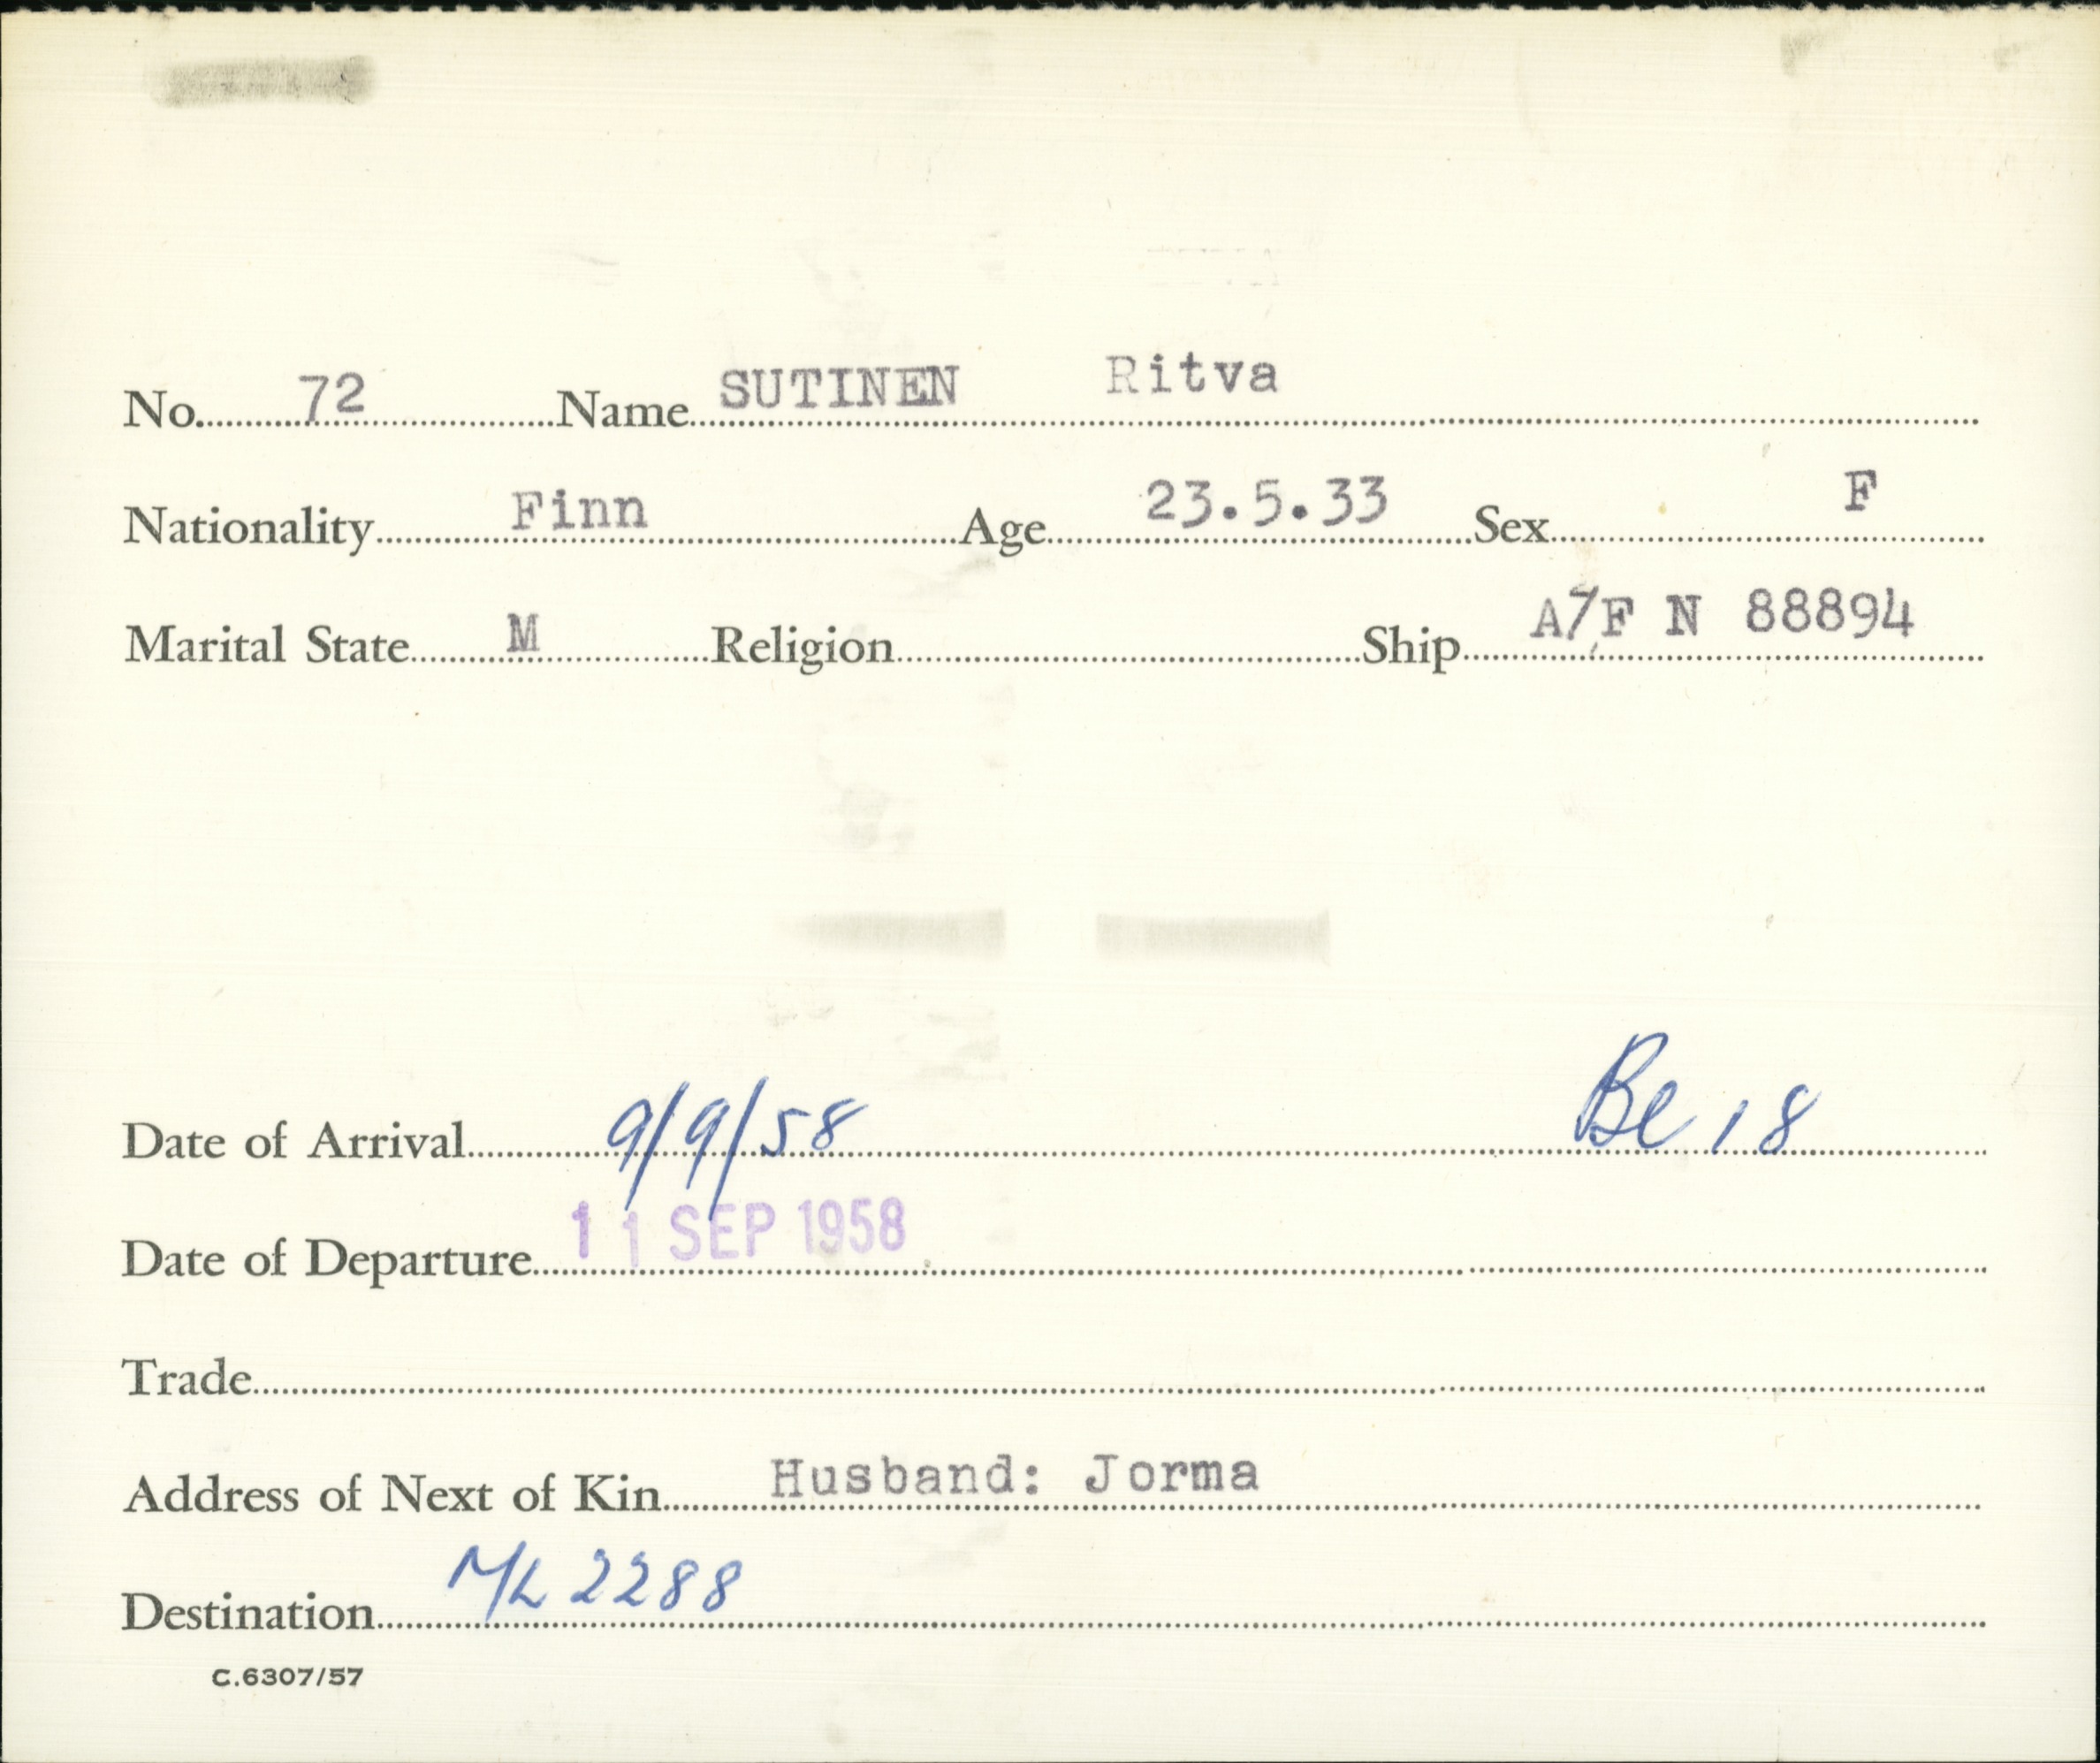 No. 72 Name SUTINEN Ritva
Nationality Finn Age 23.5.33 Sex F
Marital State M Religion Ship A/F N 88894
Date of Arrival 9/9/58 Bl 18
Date of Departure 11 SEP 1958
Trade
Address of Next of Kin Husband: Jorma
Destination 2288
C.6307/57